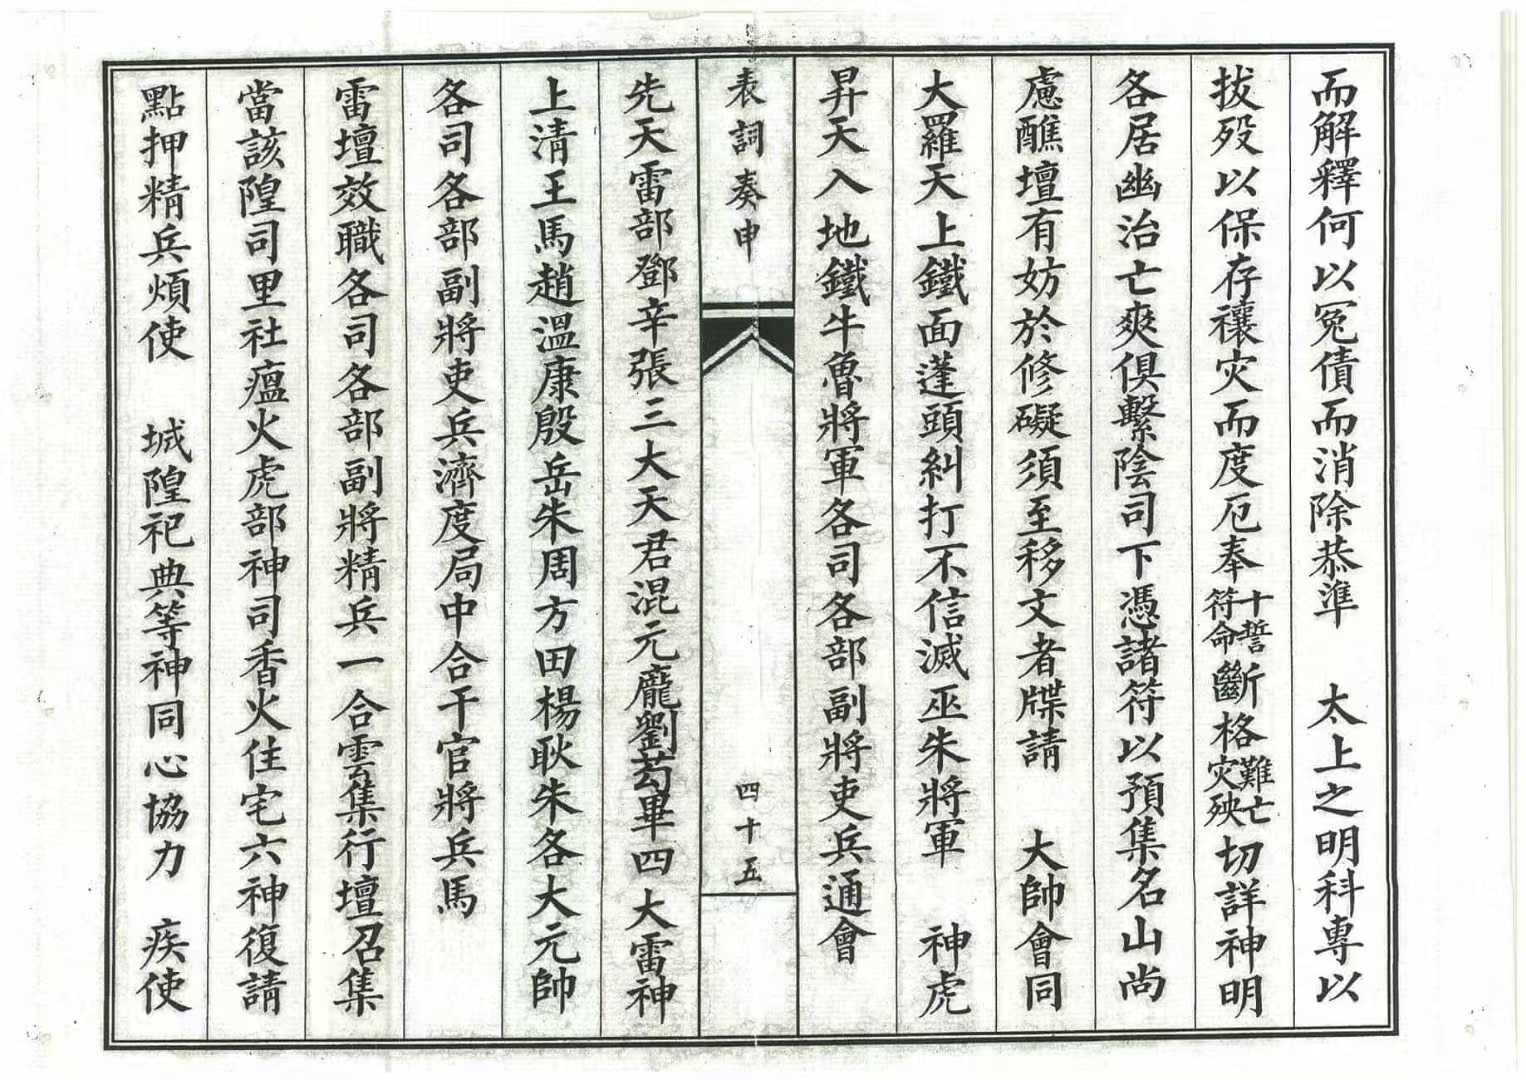 而解釋何以冤債而消除恭準　太上之明科專以
拔歿以保存禳灾而度厄奉十誓符命斷格難亡灾殃切詳神明
各居幽治亡爽俱繫陰司下憑諸符以預集名山尚
慮醮壇有妨於修礙須至移文者牒請　大帥會同
大羅天上鐵面蓬頭糾打不信滅巫朱將軍　神虎
昇天入地鐵牛魯將軍各司各部副將吏兵通會
表詞奏申
四十五
先天雷部鄧辛張三大天君混元龐劉苟畢四大雷神
上清王馬趙溫康殷岳朱周方田楊耿朱各大元帥
各司各部副將吏兵濟度局中合干官將兵馬
雷壇效職各司各部副將精兵一合雲集行壇召集
當該隍司里社瘟火虎部神司香火住宅六神復請
點押精兵煩使　城隍祀典等神同心協力　疾使